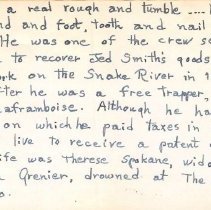 a real rough and tumble ....
nd and foot, tooth and nail
He was one of the crew se
to recover Jed Smith's goods
rk on the Snake River in 1
fter he was a free trapper,
aframboise. Although he ha
on which he paid taxes in
live to receive a patent o
ife was Therese Spokane, wido
Grenier, drowned at The